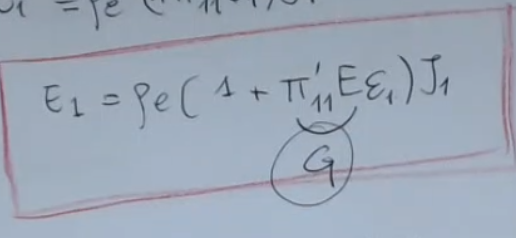 = ρe (
E₁ = ρe ( 1 + π'₁₁ E ε₁ ) J₁
G